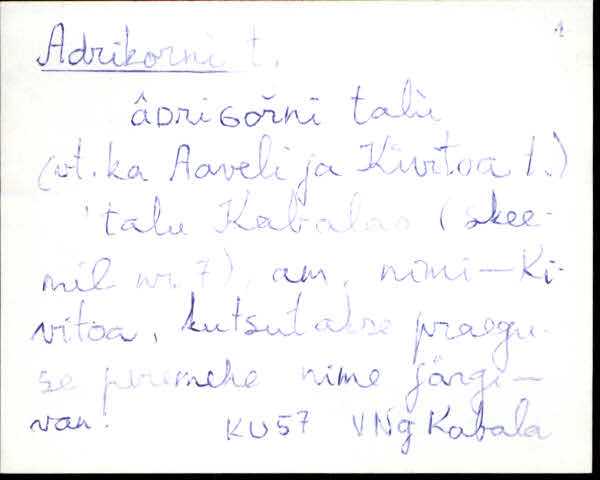 1
Adrikorni t.
âDRIGOŘNI talù
(vt. ka Aaveli ja Kivitoa 1.)
talu Kabalas (skee-
mil nr. 7), am. nimi — Ki-
vitoa, kutsutakse praegu-
se peremehe nime järgi —
van.
KU57 VNg Kabala